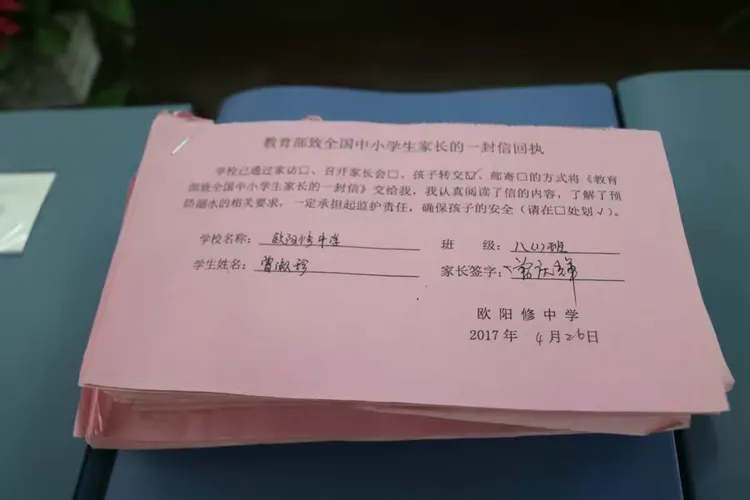 教育部致全国中小学生家长的一封信回执
学校已通过家访□、召开家长会□、孩子转交☑、邮寄□的方式将《教育
部致全国中小学生家长的一封信》交给我，我认真阅读了信的内容，了解了预
防溺水的相关要求，一定承担起监护责任，确保孩子的安全（请在□处划√）。
学校名称：欧阳修中学 班 级：八(1)班
学生姓名：曾淑珍 家长签字：
欧阳修中学
2017年 4月26日